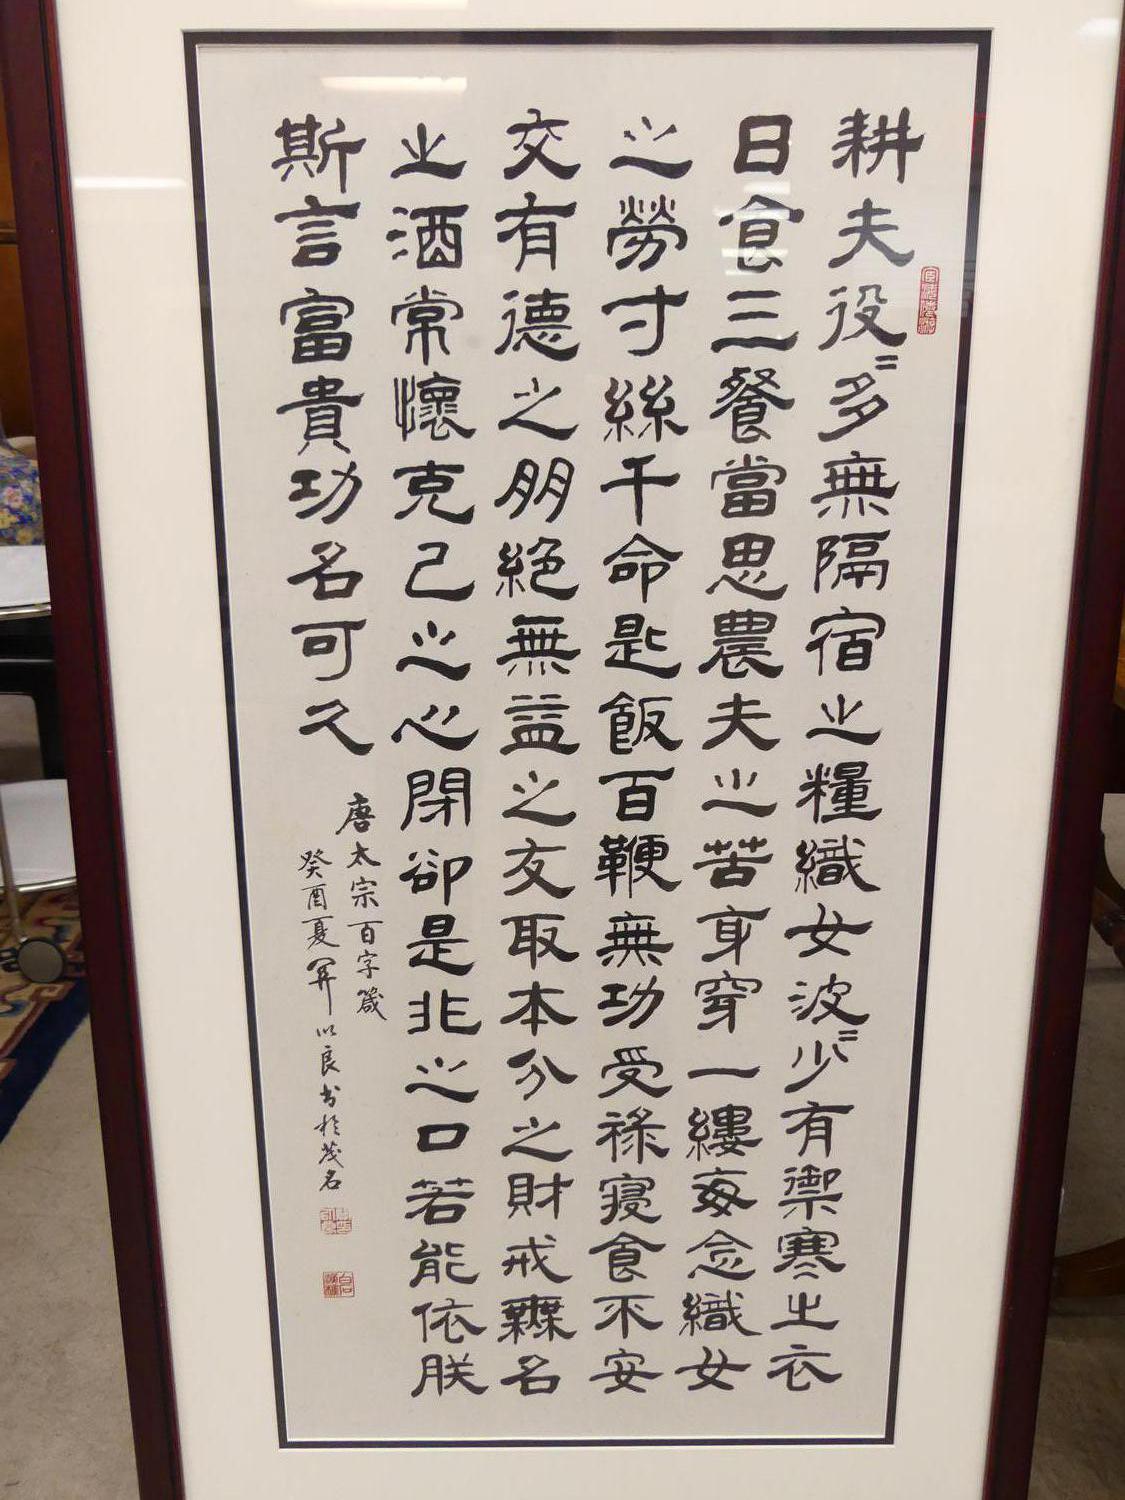 耕夫役〻多無隔宿之糧織女波〻少有禦寒之衣
日食三餐當思農夫之苦身穿一縷每念織女
之勞寸絲千命匙飯百鞭無功受祿寢食不安
交有德之朋絕無益之友取本分之財戒無名
之酒常懷克己之心閉卻是非之口若能依朕
斯言富貴功名可久
唐太宗百字箴
癸酉夏 以良书於茂名